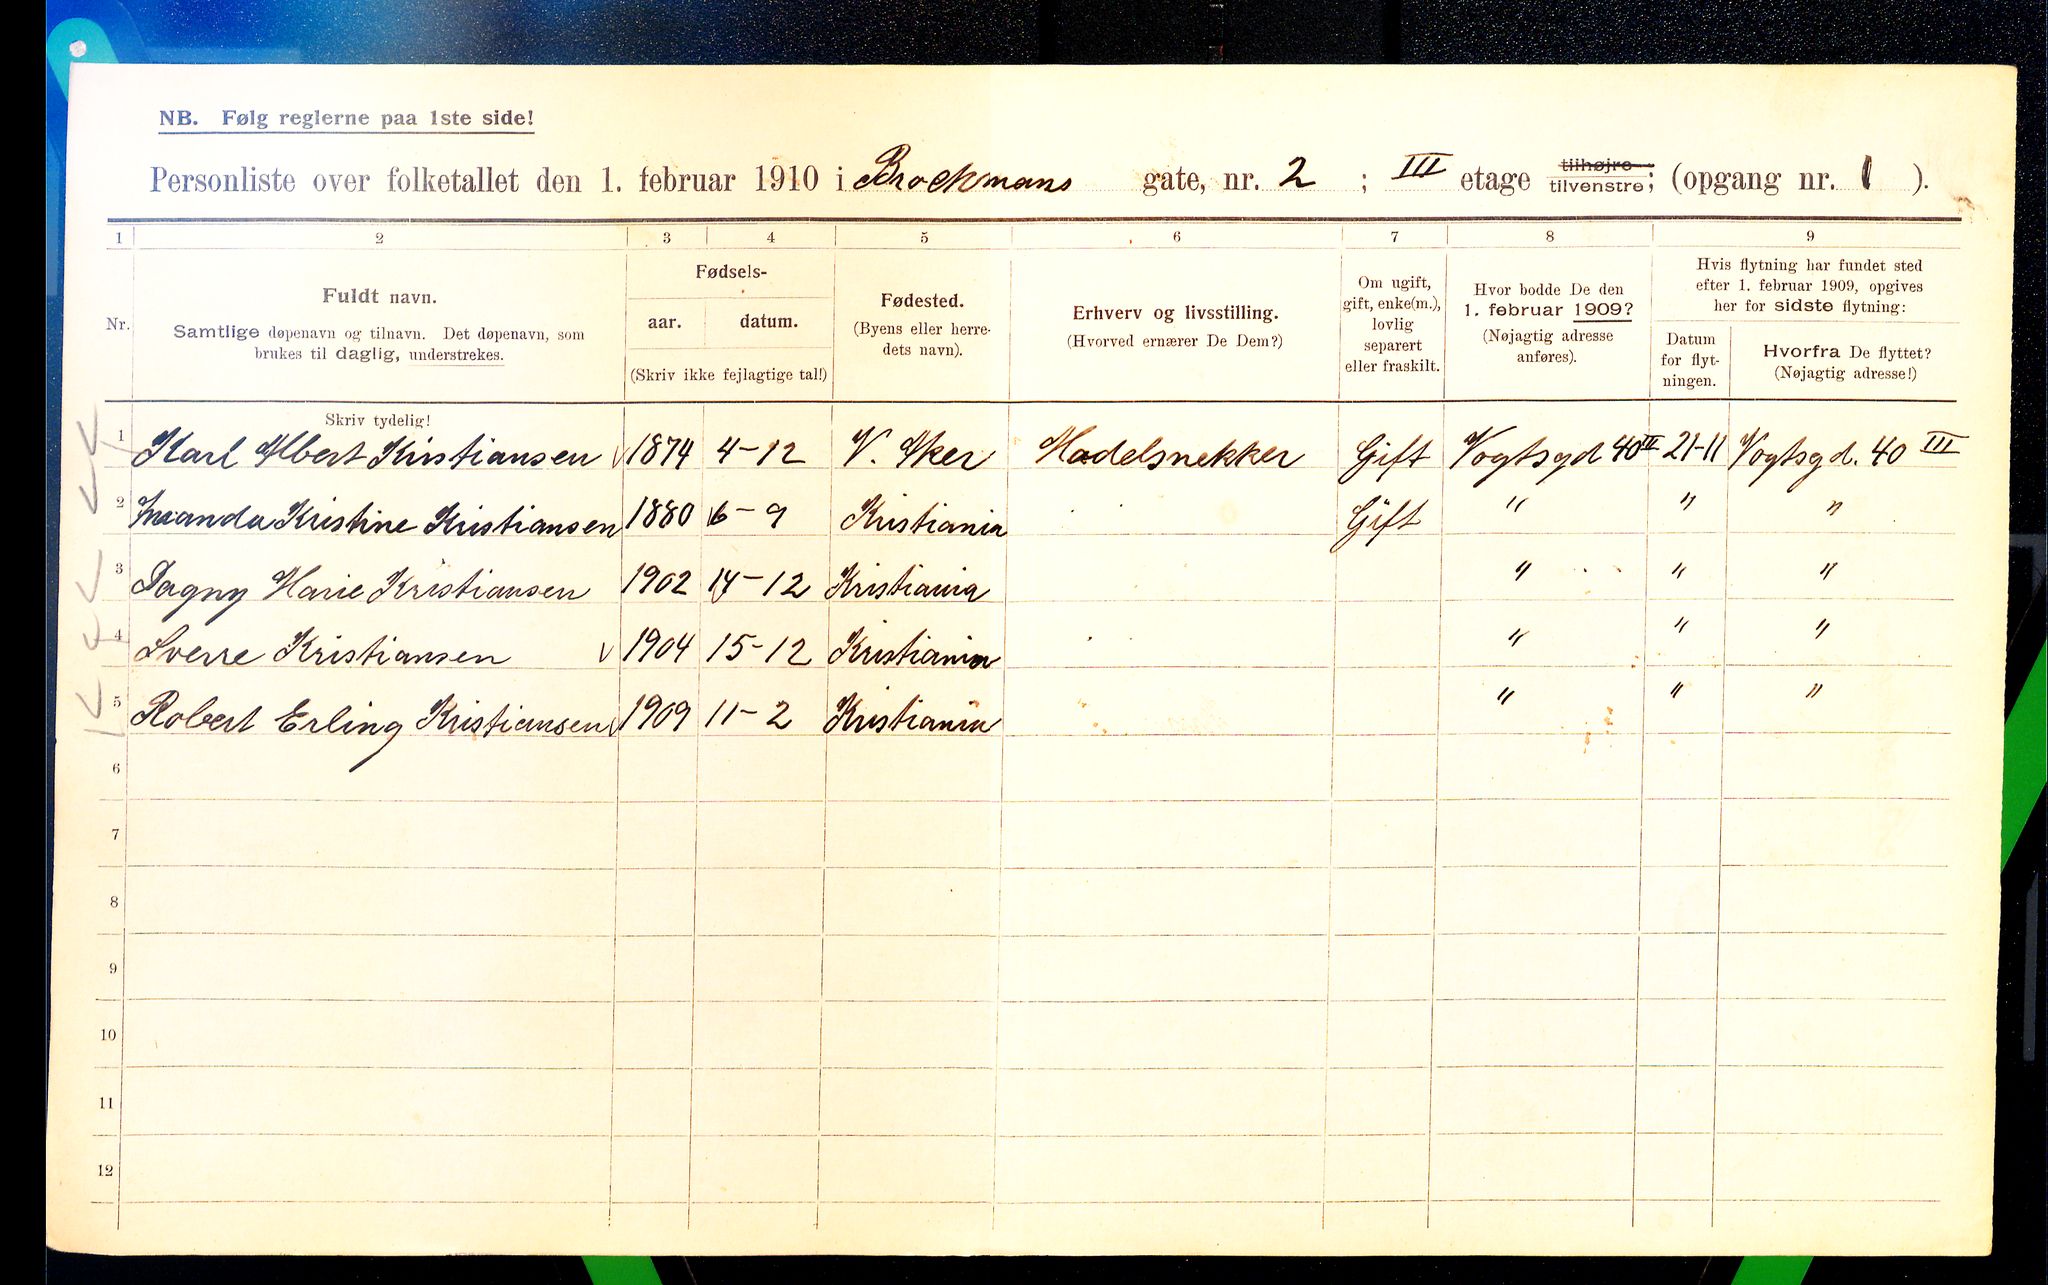 NB. Følg reglerne paa 1ste side!
Personliste over folketallet den 1. februar 1910 i Brockmans gate, nr. 2 ; III etage tilhøjre tilvenstre; (opgang nr. 1 ).
1 2 3 4 5 6 7 8 9
Nr.
Fuldt navn.
Samtlige døpenavn og tilnavn. Det døpenavn, som
brukes til daglig, understrekes.
Skriv tydelig!
Fødsels-
aar. datum.
(Skriv ikke fejlagtige tal!)
Fødested.
(Byens eller herre-
dets navn).
Erhverv og livsstilling.
(Hvorved ernærer De Dem?)
Om ugift,
gift, enke(m.),
lovlig
separert
eller fraskilt.
Hvor bodde De den
1. februar 1909?
(Nøjagtig adresse
anføres).
Hvis flytning har fundet sted
efter 1. februar 1909, opgives
her for sidste flytning:
Datum
for flyt-
ningen.
Hvorfra De flyttet?
(Nøjagtig adresse!)
1 Karl Albert Kristiansen 1874 4-12 V. Aker Gift Vogtsgd 40 III 21-11 Vogtsgd. 40 III
2 Kristine Kristiansen 1880 6-9 Kristiania Gift " " "
3 Dagny Marie Kristiansen 1902 14-12 Kristiania " " "
4 Sverre Kristiansen 1904 15-12 Kristiania " " "
5 Robert Erling Kristiansen 1909 11-2 Kristiania " " "
6
7
8
9
10
11
12